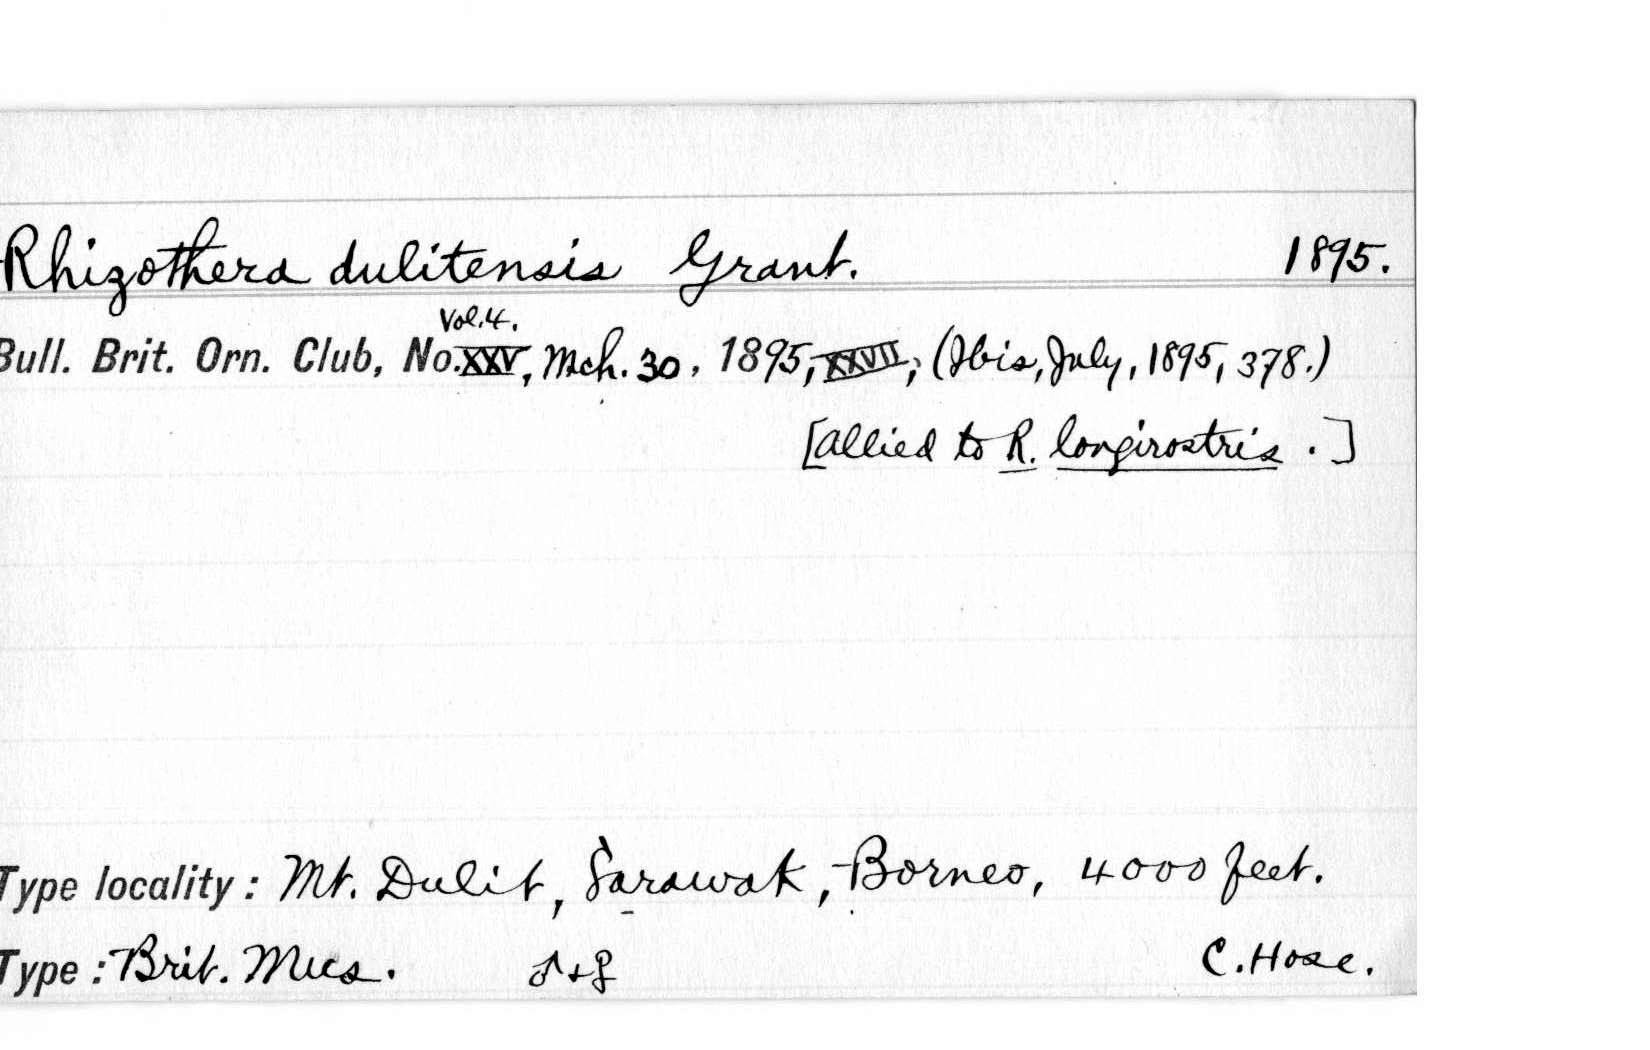 Rhizothera dulitensis Grant. 1895.
Vol. 4.
Bull. Brit. Orn. Club, No. XXV, Mch. 30, 1895, XXVII, (Ibis, July, 1895, 378.)
[allied to R. longirostris.]
Type locality: Mt. Dulit, Sarawak, Borneo, 4000 feet.
Type: Brit. Mus. ♂+♀ C. Hose.